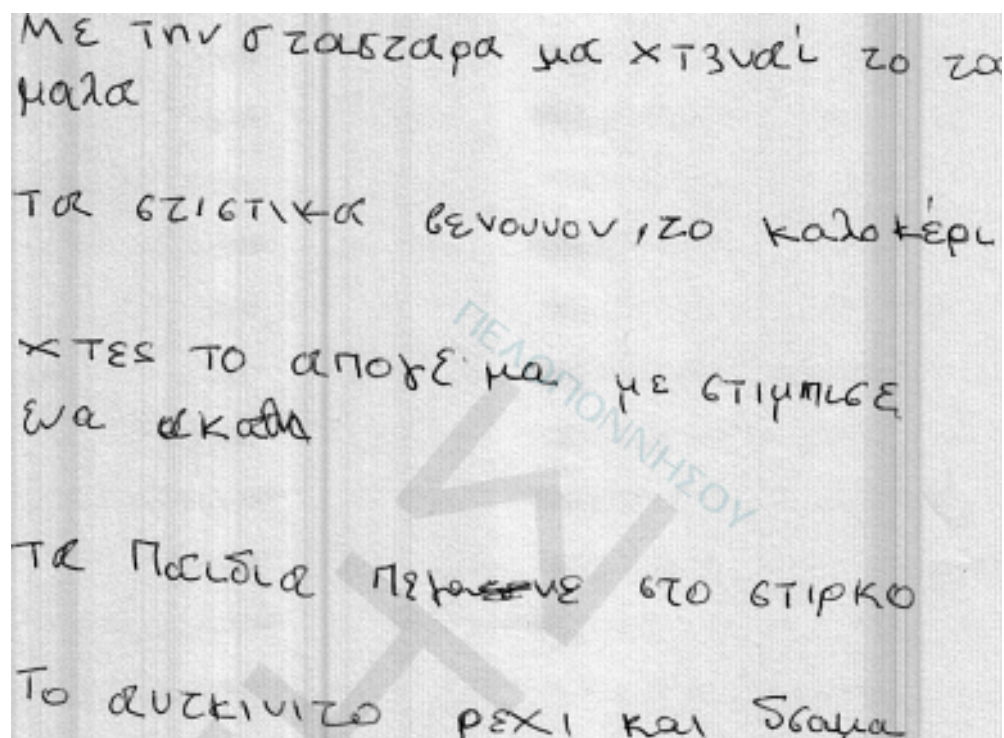 Με την σταςταρα μα χτεναί το τα
μαλα
Τα στιστικα βενουνον, το καλοκέρι
χτες το απογε μα με στιμπισε
ενα
Τα Παιδια στο στιρκο
Το αυτκινιτο ρεχι και δσαμα
ΠΕΛΟΠΟΝΝΗΣΟΥ